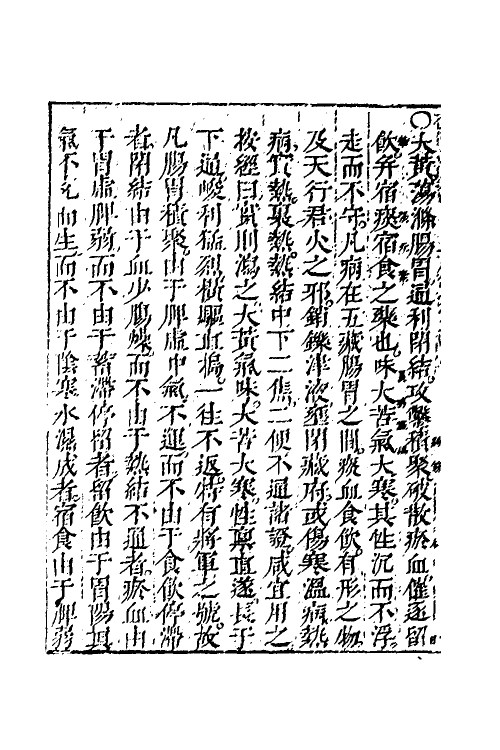 ○大黃蕩滌腸胃通利閉結攻擊積聚破散瘀血催逐留
飲弁宿痰宿食之藥也味大苦氣大寒其性沉而不浮
走而不守凡病在五藏腸胃之間瘀血食飲有形之物
及天行君火之邪銷鑠津液壅閉藏府或傷寒溫病熱
病實熱聚熱熱結中下二焦二便不通諸證咸宜用之
按經曰實則瀉之大黃氣味大苦大寒性稟直遂長于
下通峻利猛烈橫驅直搗一往不返特有將軍之號故
凡腸胃積聚由于脾虛中氣不運而不由于食飲停滯
者閉結由于血少腸燥而不由于熱結不通者瘀血由
于胃虛脾弱而不由于蓄滯停留者留飲由于胃陽眞
氣不充而生而不由于陰寒水濕成者宿食由于脾弱